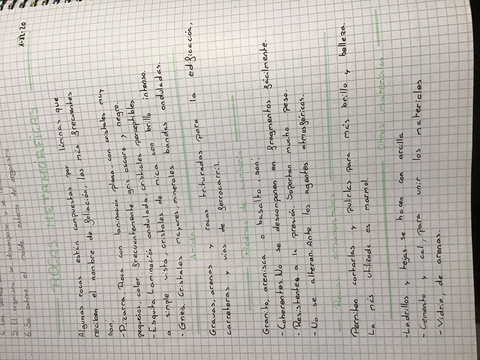 1-12-20
ROCAS METAMÓRFICAS
Algunas rocas están compuestas por láminas que
reciben el nombre de foliación, las más frecuentes
son:
- Pizarra. Roca con laminación plana con cristales muy
pequeños, color frecuentemente gris oscuro y negro.
- Esquito. Laminación ondulada, cristales perceptibles
a simple vista, cristales de mica con brillo intenso.
- Gneis. Cristales mayores, minerales bandas onduladas.
Áridos
Gravas, arenas y rocas trituradas para la edificación,
carreteras y vías de ferrocarril.
Granito, arenisca o basalto son:
- Coherentes. No se descomponen en fragmentos fácilmente.
- Resistentes a la presión. Soportan mucho peso.
- No se alteran. Ante los agentes atmosféricos.
Permiten cortarlas y pulirlas para más brillo y belleza.
La más utilizada es marmol.
- Ladrillos y tejas se hacen con arcilla
- Cemento y cal, para unir los materiales
- Vidrio, de arenas.